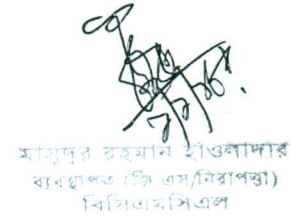 মাসুদুর রহমান হাওলাদার
ব্যবস্থাপক (জি এস/নিরাপত্তা)
বিসিএমসিএল